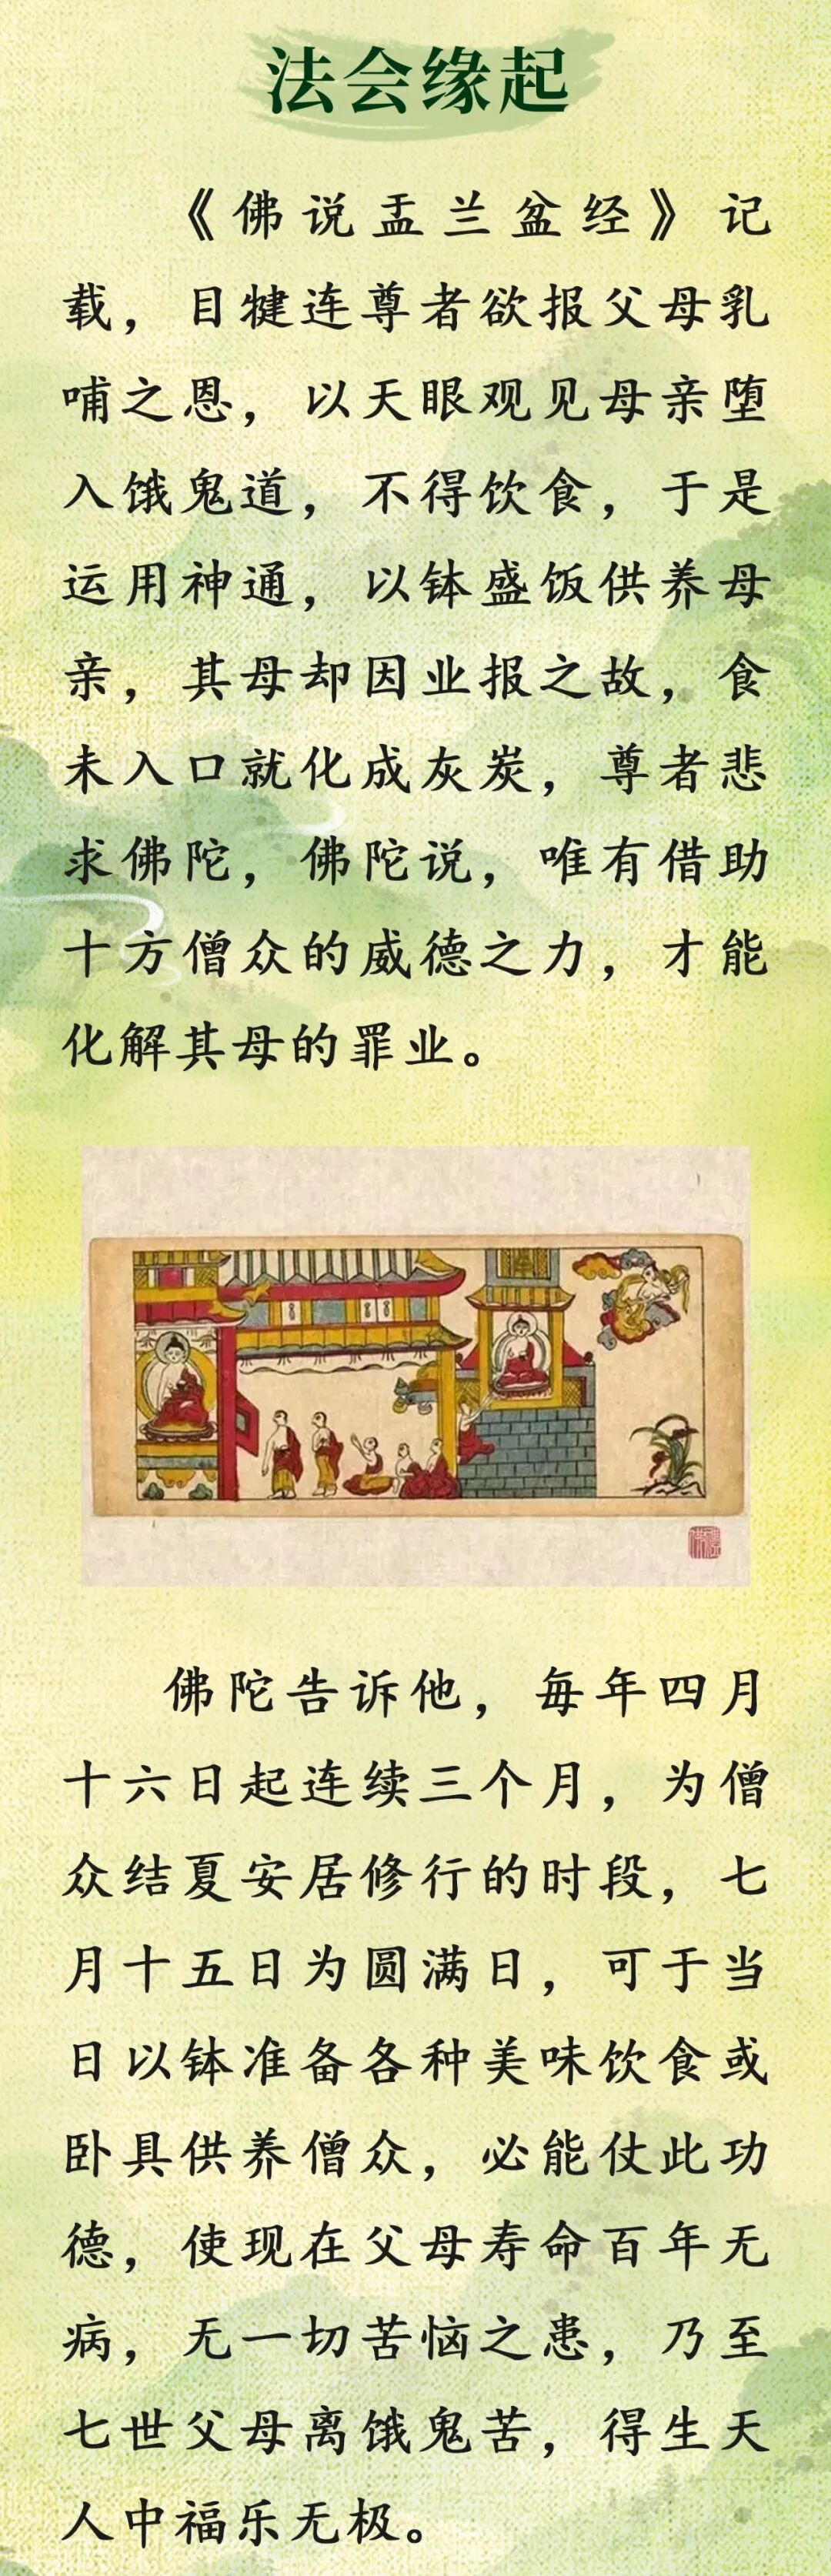 法会缘起
《佛说盂兰盆经》记
载，目犍连尊者欲报父母乳
哺之恩，以天眼观见母亲堕
入饿鬼道，不得饮食，于是
运用神通，以钵盛饭供养母
亲，其母却因业报之故，食
未入口就化成灰炭，尊者悲
求佛陀，佛陀说，唯有借助
十方僧众的威德之力，才能
化解其母的罪业。
佛陀告诉他，每年四月
十六日起连续三个月，为僧
众结夏安居修行的时段，七
月十五日为圆满日，可于当
日以钵准备各种美味饮食或
卧具供养僧众，必能仗此功
德，使现在父母寿命百年无
病，无一切苦恼之患，乃至
七世父母离饿鬼苦，得生天
人中福乐无极。